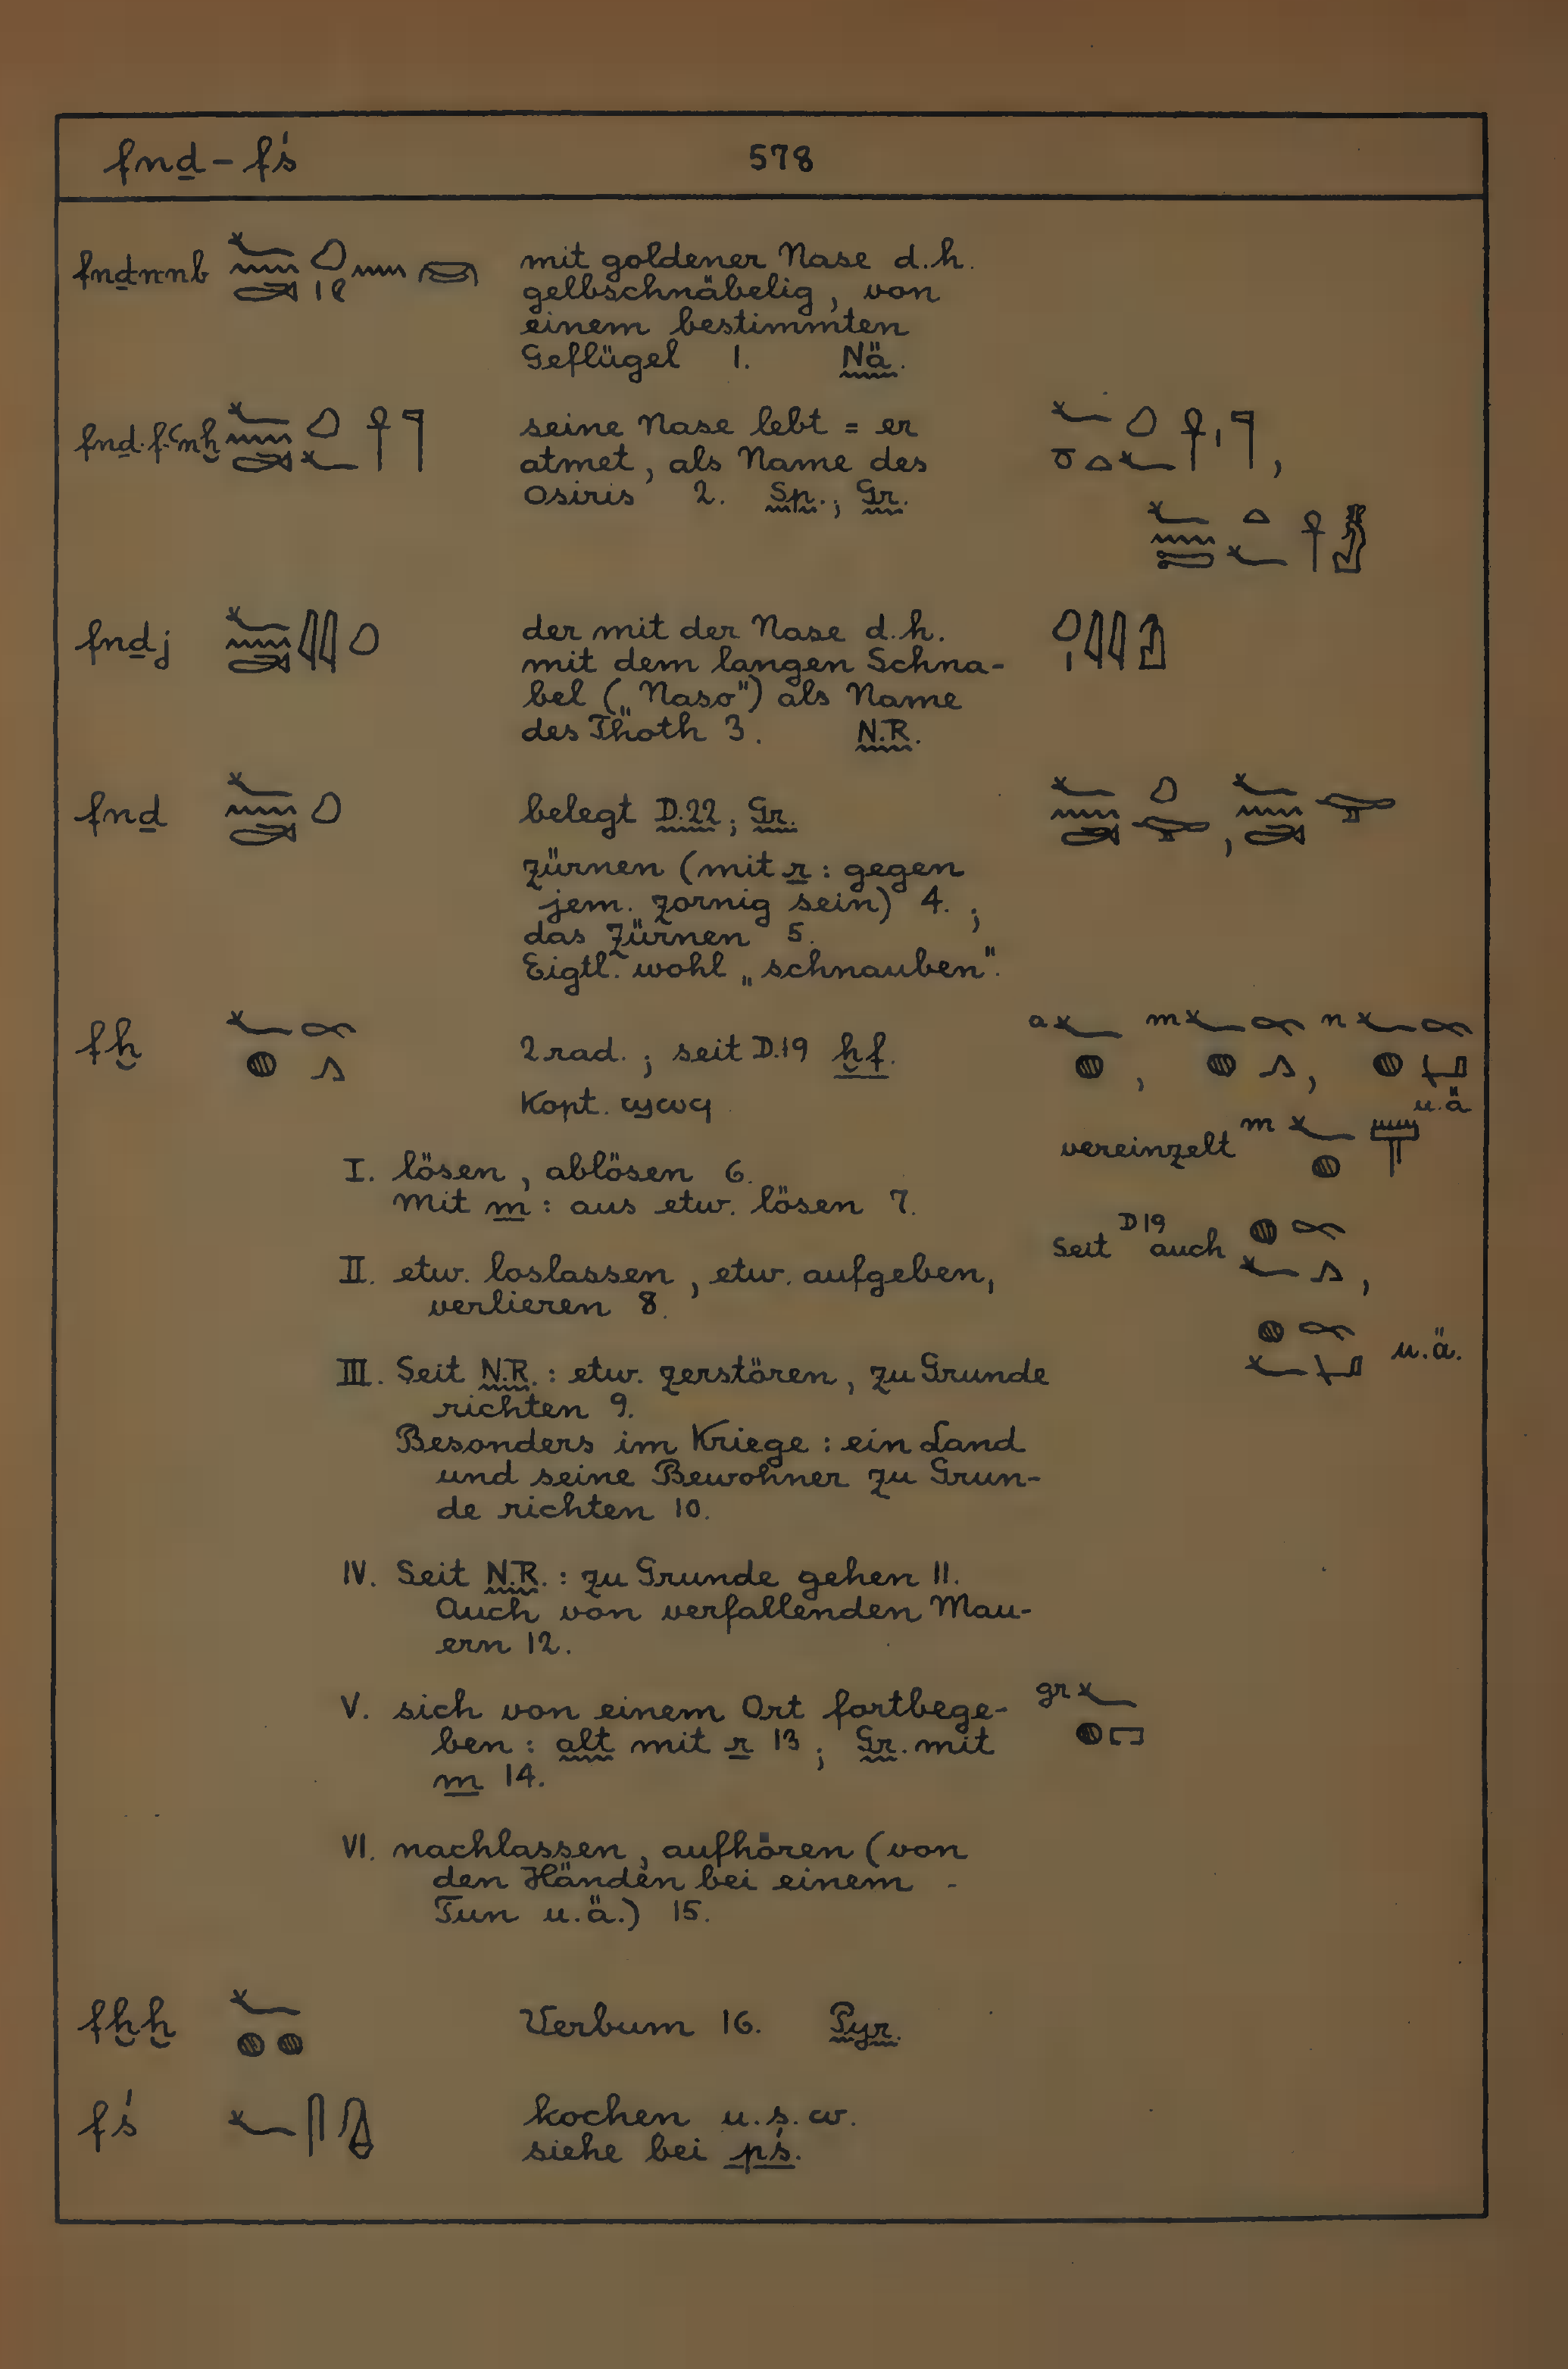 fnḏ – fś 578
fnḏ-n-nb mit goldener Nase d.h.
gelbschnäbelig, von
einem bestimmten
Geflügel 1. Nä.
fnḏ.f-ꜥnḫ seine Nase lebt = er
atmet, als Name des
Osiris 2. Sp.; Gr.
fnḏj der mit der Nase d.h.
mit dem langen Schna-
bel („Naso") als Name
des Thoth 3. N.R.
fnḏ belegt D.22; Gr.
zürnen (mit r: gegen
jem. zornig sein) 4.;
das Zürnen 5.
Eigtl. wohl „schnauben".
fḫ 2 rad.; seit D.19 ḫf. a , m , n u.ä
Kopt. ϣⲱϥ
vereinzelt m
I. lösen, ablösen 6.
Mit m: aus etw. lösen 7.
Seit D19 auch ,
II. etw. loslassen, etw. aufgeben,
verlieren 8.
u.ä.
III. Seit N.R.: etw. zerstören, zu Grunde
richten 9.
Besonders im Kriege: ein Land
und seine Bewohner zu Grun-
de richten 10.
IV. Seit N.R.: zu Grunde gehen 11.
Auch von verfallenden Mau-
ern 12.
V. sich von einem Ort fortbege- gr
ben: alt mit r 13; Gr. mit
m 14.
VI. nachlassen, aufhören (von
den Händen bei einem
Tun u.ä.) 15.
fḫḫ Verbum 16. Pyr.
fś kochen u.s.w.
siehe bei pś.